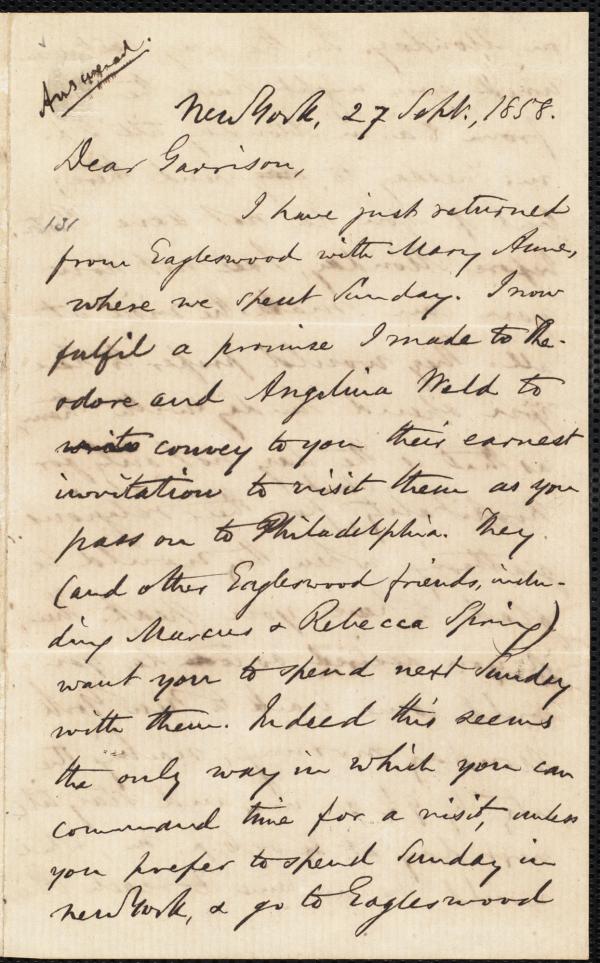 Answered.
New York, 27 Sept., 1858.
Dear Garrison,
131
I have just returned
from Eagleswood with Mary Anne,
where we spent Sunday. I now
fulfil a promise I made to The-
odore and Angelina Weld to
write convey to you their earnest
invitation to visit them as you
pass on to Philadelphia. They
(and other Eagleswood friends, inclu-
ding Marcus & Rebecca Spring)
want you to spend next Sunday
with them. Indeed this seems
the only way in which you can
command time for a visit, unless
you prefer to spend Sunday in
New York, & go to Eagleswood